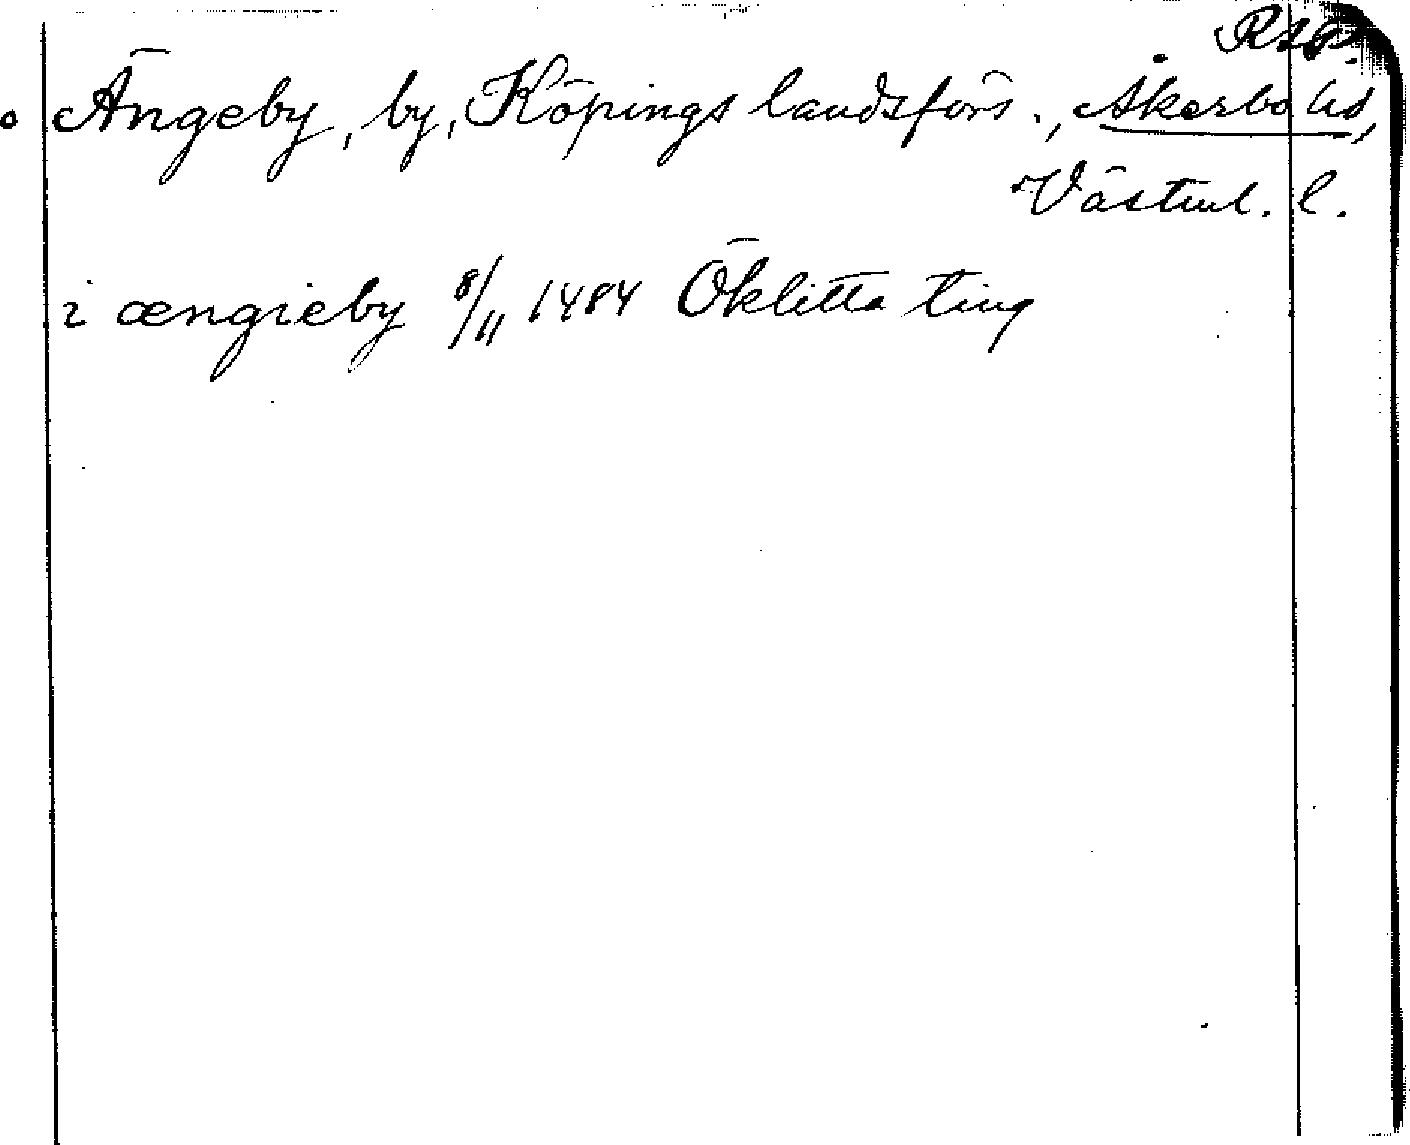 RAp.
Ängeby, by, Köpings landsförs., Åkerbo hd,
Västml. l.
i ængieby 8/11 1484 Öklitta ting